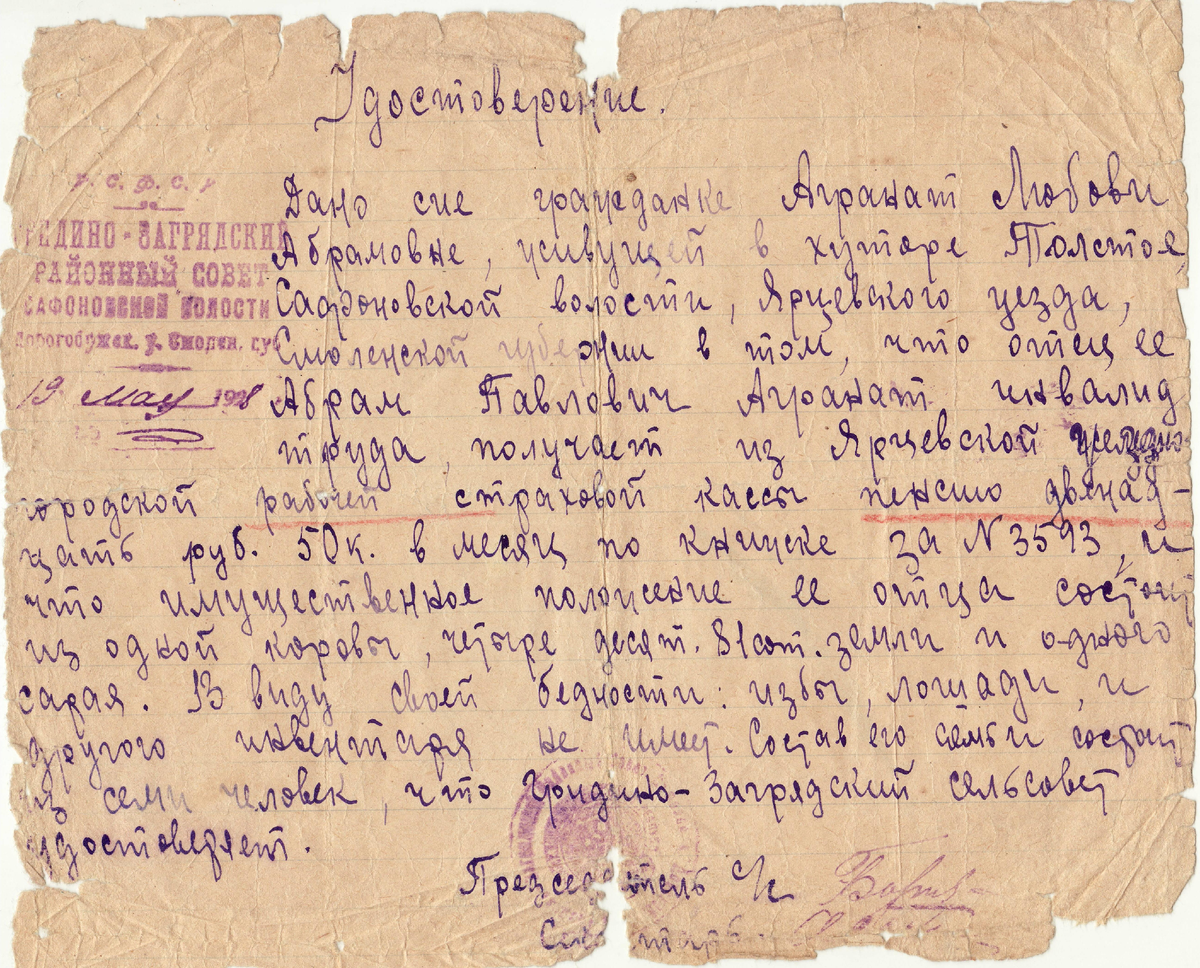 Удостоверение.
Р. С. Ф. С. Р
РЕДИНО-ЗАГРЯДСКИЙ
РАЙОННЫЙ СОВЕТ
САФОНОВСКОЙ ВОЛОСТИ
Дорогобужск. у. Смолен. губ
19 мая 1928
Дано сие гражданке Агранат Любови
Абрамовне, живущей в хуторе Толстое,
Сафоновской волости, Ярцевского уезда,
Смоленской губернии в том, что отец ее
Абрам Павлович Агранат инвалид
труда, получает из Ярцевской уездно
городской рабочей страховой кассы пенсию двенад-
цать руб. 50к. в месяц по книжке за N 3593, и
что имущественное положение ее отца состоит
из одной коровы, четыре десят. 81 сот. земли и одного
сарая. В виду своей бедности: избы, лошади, и
другого инвентаря не имеет. Состав его семьи состоит
из семи человек, что Гридино-Загрядский сельсовет
удостоверяет.
Председатель с/с